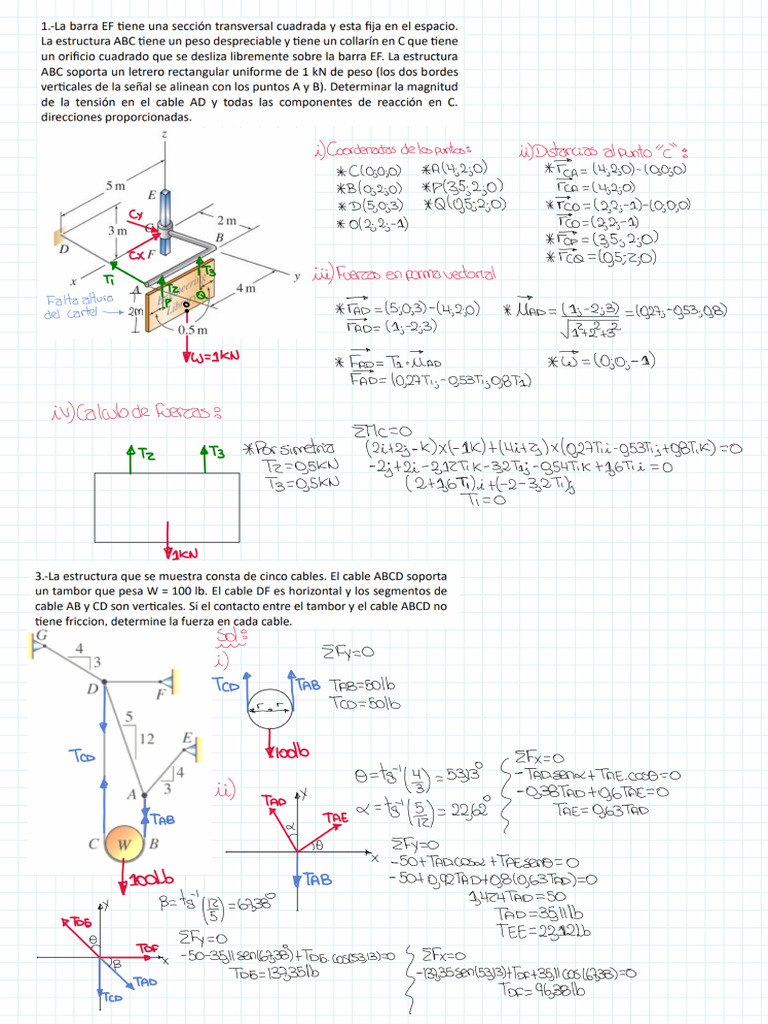 1.-La barra EF tiene una sección transversal cuadrada y esta fija en el espacio.
La estructura ABC tiene un peso despreciable y tiene un collarín en C que tiene
un orificio cuadrado que se desliza libremente sobre la barra EF. La estructura
ABC soporta un letrero rectangular uniforme de 1 kN de peso (los dos bordes
verticales de la señal se alinean con los puntos A y B). Determinar la magnitud
de la tensión en el cable AD y todas las componentes de reacción en C.
direcciones proporcionadas.
z
5 m
E
Cy
2 m
3 m
B
D
Cx F
T1
T3
x
A
T2
y
P
Q
4 m
Falta altura
del cartel
2m
0.5 m
W=1KN
i) Coordenadas de los puntos:
*C(0;0;0) *A(4;2;0)
*B(0;2;0) *P(3,5;2;0)
*D(5;0;3) *Q(0,5;2;0)
*O(2;2;-1)
ii) Distancias al punto "C":
*rCA = (4;2;0)-(0;0;0)
rCA=(4;2;0)
*rCO=(2;2;-1)-(0;0;0)
rCO=(2;2;-1)
*rCP=(3,5;2;0)
*rCQ=(0,5;2;0)
iii) Fuerzas en forma vectorial
*rAD=(5;0;3)-(4;2;0)
rAD=(1;-2;3)
*μAD=(1;-2;3)/√1²+2²+3²=(0,27;-0,53;0,8)
*FAD=T1·μAD
FAD=(0,27T1;-0,53T1;0,8T1)
*W=(0;0;-1)
iv) Calculo de Fuerzas:
T2
T3
1KN
*Por simetria
T2=0,5KN
T3=0,5KN
ΣMc=0
(2i+2j-K)x(-1K)+(4i+2j)x(0,27T1i-0,53T1j+0,8T1K)=0
-2j+2i-2,12T1K-3,2T1j-0,54T1K+1,6T1i=0
(2+1,6T1)i+(-2-3,2T1)j
T1=0
3.-La estructura que se muestra consta de cinco cables. El cable ABCD soporta
un tambor que pesa W = 100 lb. El cable DF es horizontal y los segmentos de
cable AB y CD son verticales. Si el contacto entre el tambor y el cable ABCD no
tiene friccion, determine la fuerza en cada cable.
G
4
3
D
F
5
12
E
TCD
4
3
A
TAB
C
W
B
100lb
Sol:
i)
TCD
TAB
r
r
100lb
ΣFy=0
TAB=50lb
TCD=50lb
ii)
y
TAD
TAE
α
θ
x
TAB
θ=tg⁻¹(4/3)=53,13°
α=tg⁻¹(5/12)=22,62°
ΣFx=0
-TADsenα+TAE.cosθ=0
-0,38TAD+0,6TAE=0
TAE=0,63TAD
ΣFy=0
-50+TADcosα+TAEsenθ=0
-50+0,92TAD+0,8(0,63TAD)=0
1,424TAD=50
TAD=35,11lb
TEE=22,12lb
y
TDG
θ
TDF
x
β
TAD
TCD
β=tg⁻¹(12/5)=67,38°
ΣFy=0
-50-35,11sen(67,38°)+TDG.cos(53,13)=0
TDG=137,35lb
ΣFx=0
-137,35sen(53,13)+TDF+35,11cos(67,38)=0
TDF=96,38lb